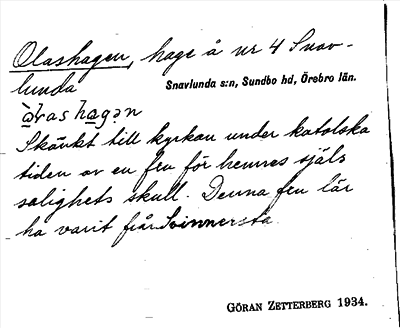 Olashagen, hage å nr 4 Snav-
lunda
Snavlunda s:n, Sundbo hd, Örebro län.
Skänkt till kyrkan under katolska
tiden av en fru för hennes själs
salighets skull. Denna fru lär
ha varit från Svinnersta.
GÖRAN ZETTERBERG 1934.